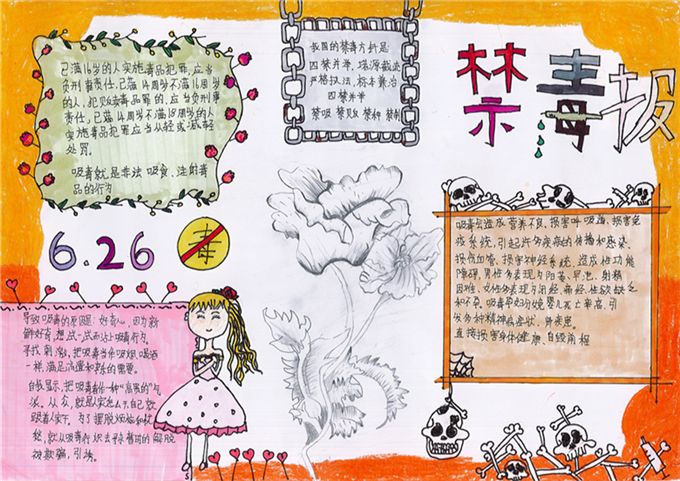 禁毒报
我国的禁毒方针是
四禁并举, 堵源截流
严格执法, 标本兼治
四禁并举
禁吸 禁贩 禁种 禁制
已满16岁的人实施毒品犯罪,应当
负刑事责任.已满14周岁不满16周岁
的人,犯贩卖毒品罪的,应当负刑事
责任,已满14周岁不满18周岁的人
实施毒品犯罪应当从轻或减轻
处罚.
吸毒就是非法吸食、注射毒
品的行为
6.26
毒
导致吸毒的原因:好奇心,因为新
鲜好奇,想试一试而沾上吸毒行为.
寻找刺激,把吸毒当命吸烟、喝酒
一样,满足
自我显示,把吸毒看作一种"点派的"气
派。从众,就是人家怎么干,自己就
跟着人家干。为了摆脱烦恼和忧
愁,就从吸毒行为去寻求暂时的解脱
被欺骗,引诱。
吸毒会造成营养不良、损害呼吸道、损害免
疫系统,引起许多疾病的传播和感染.
损伤血管、损害神经系统、造成性功能
障碍,男性多表现为阳萎、早泄、射精
困难,女性多表现为闭经,痛经,性欲缺乏
和不孕。吸毒孕妇分娩婴儿死亡率高,引
发多种精神病症状,肺
直接损害身体健康,自毁前程